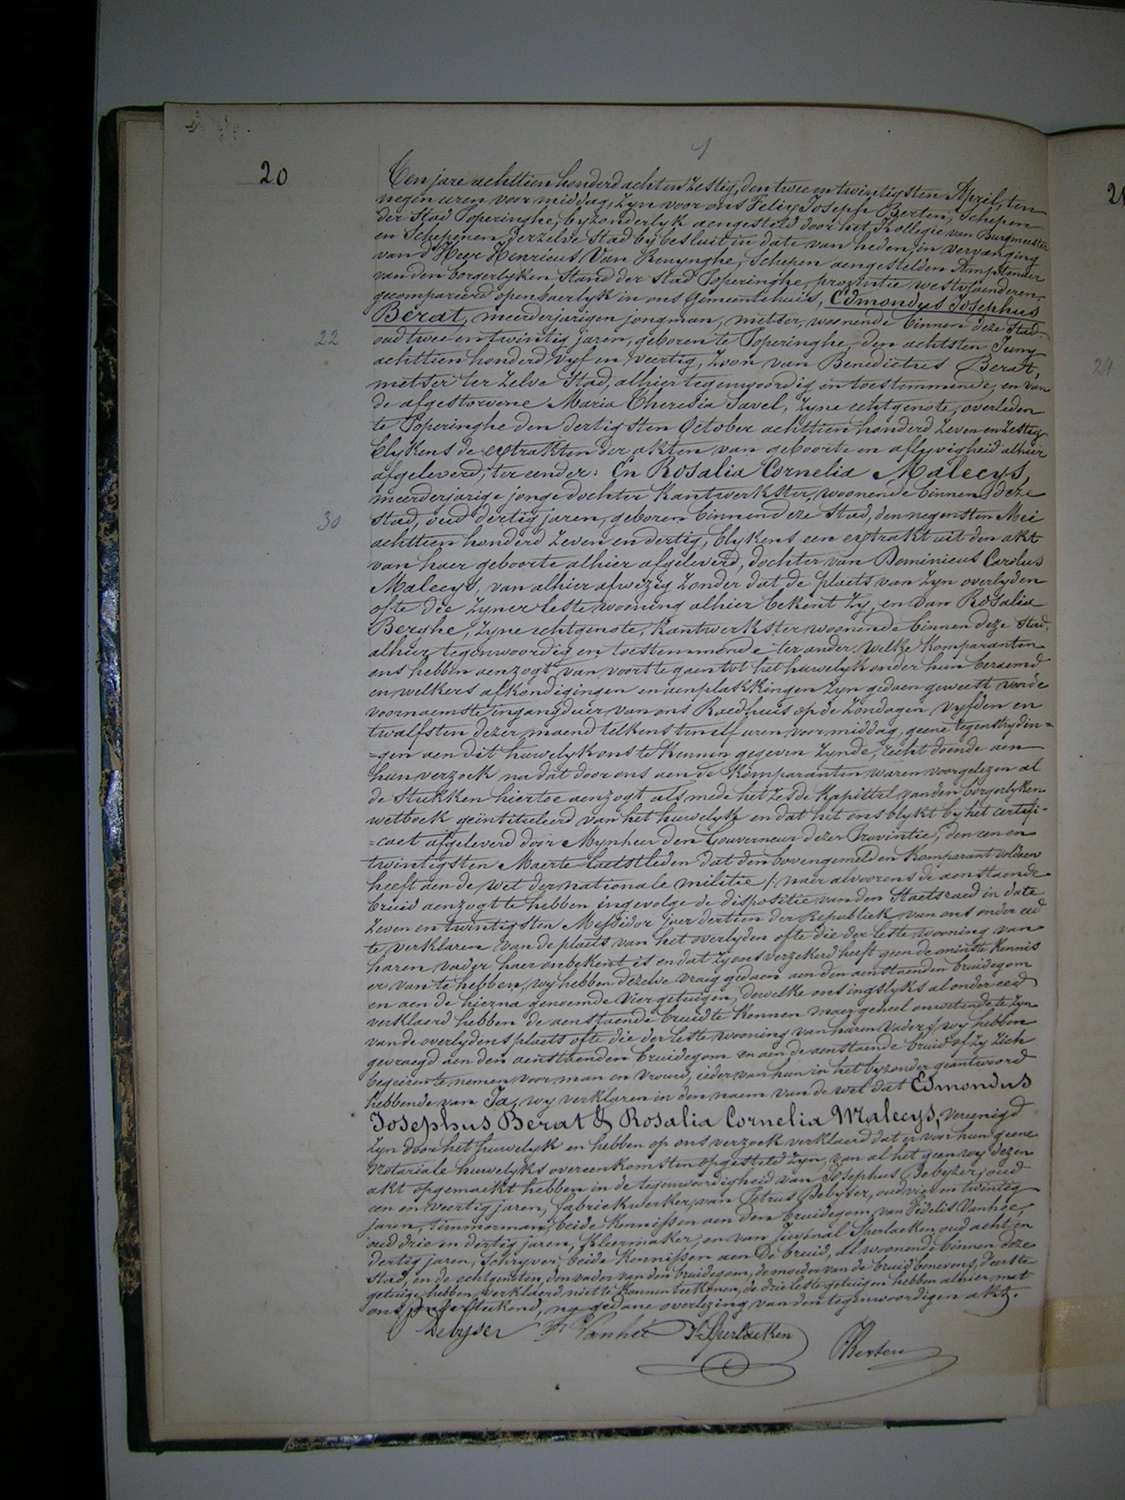 20
Ten jare achttien honderd acht en zestig, den twee en twintigsten April, ten
negen uren voor middag, zyn voor ons Felix Joseph Berten, Schepen
der Stad Poperinghe, byzonderlyk aengesteld door het Kollegie van Burgmeester
en Schepenen derzelve Stad by besluit in date van heden, in vervanging
van d'Heer Henricus Van Renynghe, Schepen aengestelden Amptenaer
van den borgerlyken Stand der Stad Poperinghe, provintie westvlaenderen,
gecompareerd openbaerlyk in ons Gemeentehuis, Edmondus Josephus
Berat, meerderjarigen jongman, metser, woonende binnen deze Stad
22
oud twee en twintig jaren, geboren te Poperinghe, den achtsten Juny
achttien honderd vyf en veertig, zoon van Benedictus Berat,
metser ter zelve Stad, alhier tegenwoordig en toestemmende, en van
de afgestorvene Maria Theresia Savel, zyne echtgenote, overleden
te Poperinghe den dertigsten October achttien honderd zeven en zestig
blykens de extrakten der akten van geboorte en aflyvigheid alhier
afgeleverd, ter eender: En Rosalia Cornelia Malecys,
meerderjarige jonge dochter Kantwerkster, woonende binnen deze
30
Stad, oud dertig jaren, geboren binnen deze Stad, den negensten Mei
achttien honderd zeven en dertig, blykens een extrakt uit den akt
van haer geboorte alhier afgeleverd, dochter van Dominicus Carolus
Malecys, van alhier afwezig zonder dat de plaets van zyn overlyden
ofte die zyner leste wooning alhier bekent zy, en van Rosalia
Berghe, zyne echtgenote, Kantwerkster woonende binnen deze Stad,
alhier tegenwoordig en toestemmende ter ander; welke Komparanten
ons hebben aenzogt van voort te gaen tot het huwelyk onder hun beraemd
en welkers afkondigingen en aenplakkingen zyn gedaen geweest voor de
voornaemste ingangdeur van ons Raedhuis op de Zondagen vyfden en
twalfsten dezer maend telkens ten elf uren, voor middag, geene tegenstrydin=
=gen aen dit huwelyk ons te kennen gegeven zynde, recht doende aen
hun verzoek na dat door ons aen de Komparanten waren voorgelezen al
de Stukken hiertoe aenzogt als mede het zesde Kapittel van den borgerlyken
wetboek geïntituleerd van het huwelyk en dat uit ons blykt by het certifi=
=caet afgeleverd door Mynheer den Gouverneur dezer Provintie, den een en
twintigsten Maerte laetstleden dat den bovengemelden Komparant voldaen
heeft aen de wet der nationale militie / naer alvoorens de aenstaende
bruid aenzogt te hebben ingevolge de dispositie van den Staetsraed in date
zeven en twintigsten Messidor jaer dertien der Republiek van ons onder eed
te verklaren van de plaets van het overlyden ofte die der leste wooning van
haren vader haer onbekent is en dat zy ons verzekerd heeft geen de minste kennis
er van te hebben, wy hebben dezelve vraeg gedaen aen den aenstaenden bruidegom
en aen de hierna genoemde vier getuigen, dewelke ons ingslyks al onder eed
verklaerd hebben de aenstaende bruid te kennen maer geheel onwetende te zyn
van de overlydens plaets ofte die der leste wooning van haren Vader / wy hebben
gevraegd aen den aenstaenden bruidegom en aen de aenstaende bruid of zy zich
begeiren te nemen voor man en vrouw, ieder van hun in het byzonder geantwoord
hebbende van Ja, wy verklaren in den naem van de wet dat Edmondus
Josephus Berat & Rosalia Cornelia Malecys, vereenigd
zyn door het huwelyk en hebben op ons verzoek verklaerd dat er voor hun geene
Notariale huwelyks overeenkomsten opgesteld zyn, van al het geen wy dezen
akt opgemaekt hebben in de tegenwoordigheid van Josephus Debyser, oud
een en veertig jaren, fabriekwerker, van Petrus Debyser, oud vier en twintig
jaren, timmerman, beide Kennissen aen den bruidegom, van Fidelis Vanhée,
oud drie en dertig jaren, Kleermaker, en van Juvenal Sperlaeken oud acht en
dertig jaren, Schryver, beide Kennissen aen de bruid, al woonende binnen deze
Stad, en de echtgenoten, den vader van den bruidegom, de moeder van de bruid benevens d'eerste
getuige hebben verklaerd niet te konnen teekenen, de drie leste getuigen hebben alhier met
ons onderteekend, na gedane overlezing van den tegenwoordigen akt.
Debyser F. Vanhée J. Sperlaeken
F. Berten